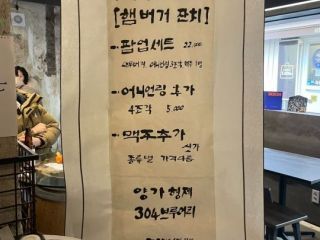 [햄버거 판회]
- 팝업세트 22.000
- 어니언링 추가
4조각 5.000
- 맥주추가
싯가
종류별 가격상이
양가형제
304브루어리